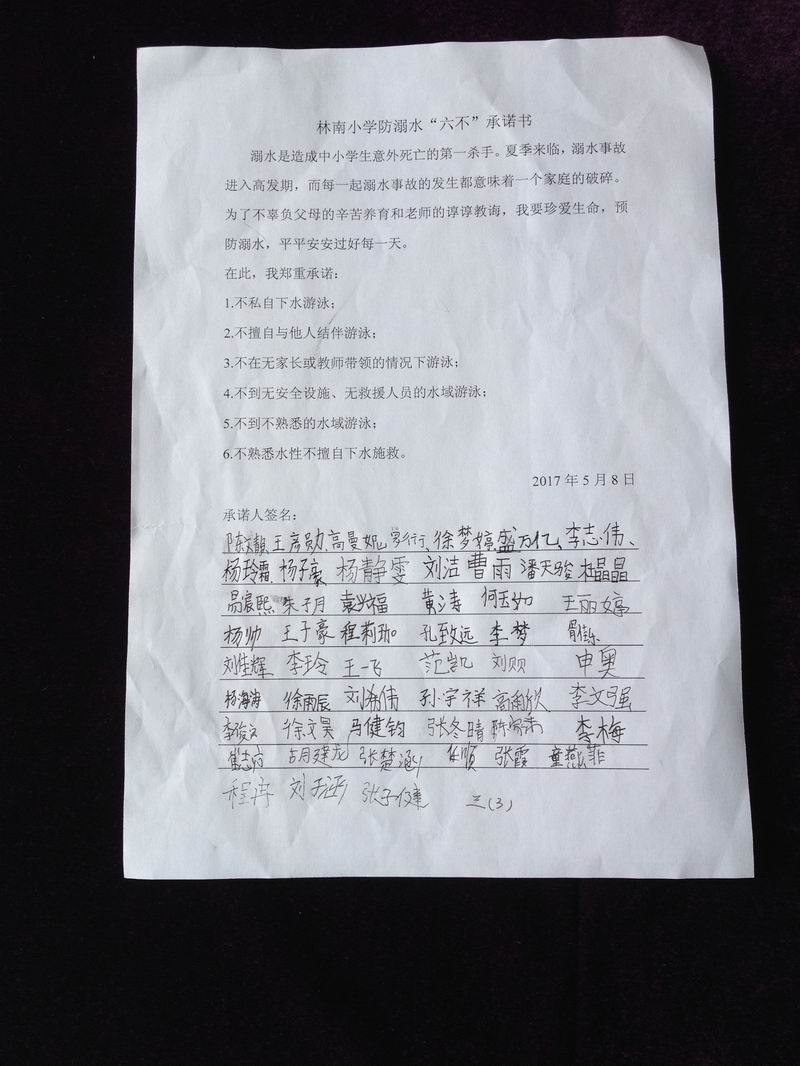 林南小学防溺水“六不”承诺书
溺水是造成中小学生意外死亡的第一杀手。夏季来临，溺水事故
进入高发期，而每一起溺水事故的发生都意味着一个家庭的破碎。
为了不辜负父母的辛苦养育和老师的谆谆教诲，我要珍爱生命，预
防溺水，平平安安过好每一天。
在此，我郑重承诺：
1.不私自下水游泳；
2.不擅自与他人结伴游泳；
3.不在无家长或教师带领的情况下游泳；
4.不到无安全设施、无救援人员的水域游泳；
5.不到不熟悉的水域游泳；
6.不熟悉水性不擅自下水施救。
2017 年 5 月 8 日
承诺人签名：
陈文靓、王彦勋、高曼妮、徐梦婷、盛万亿、李志伟、
杨玲霜 杨子豪 杨静雯 刘洁 曹雨 潘天骏 杜晶晶
易宸熙 朱子月 袁兴福 黄海涛 何玉如 王丽婷
杨帅 王子豪 程莉珈 孔致远 李梦
刘佳辉 李玲 王一飞 范凯 刘顺 申奥
杨海涛 徐雨辰 刘希伟 孙宇祥 高雨欣 李文强
李俊文 徐文昊 马健钧 张冬晴 李梅
胡建龙 张楚涵 张霞 童燕菲
程冉 刘子涵 张子健 三（3）